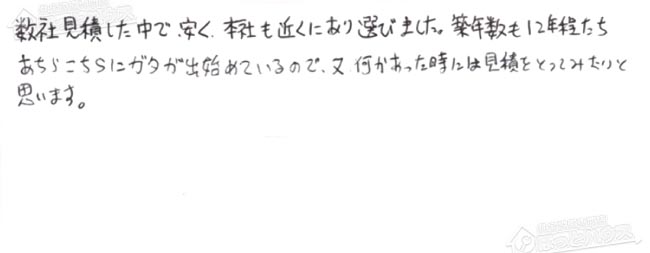 数社見積した中で、安く、本社も近くにあり選びました。築年数も12年程たち
あちらこちらにガタが出始めているので、又何かあった時には見積をとってみたいと
思います。
ほっとハウス